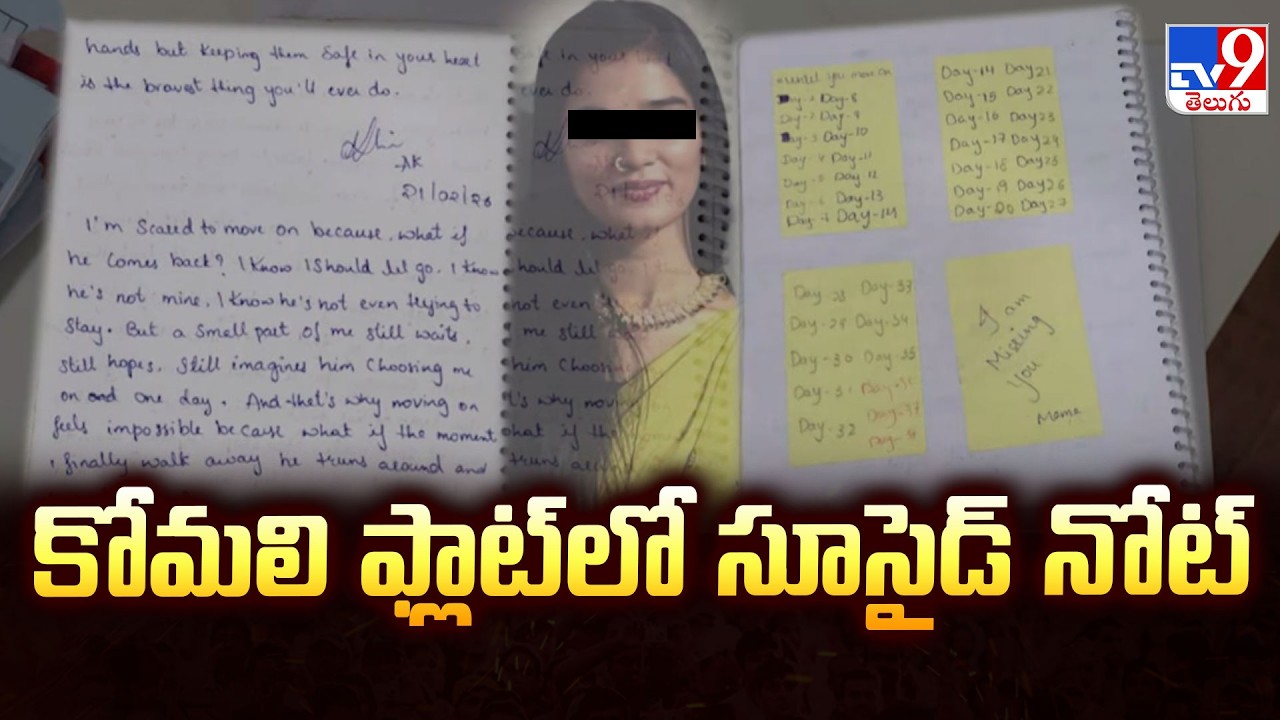 hands but keeping them safe in your heart
is the bravest thing you'll ever do.
-AK
21/02/26
I'm Scared to move on because, what if
he comes back? I know I should let go. I know
he's not mine, I know he's not even trying to
stay. But a small part of me still waits,
still hopes. Still imagines him choosing me
on and one day. And that's why moving on
feels impossible because what if the moment
I finally walk away he truns around and
until you move on
Day-8
Day-2 Day-9
Day-3 Day-10
Day-4 Day-11
Day-5 Day-12
Day-6 Day-13
Day-7 Day-14
Day-14 Day21
Day-15 Day22
Day-16 Day23
Day-17 Day24
Day-18 Day25
Day-19 Day26
Day-20 Day27
Day-28 Day-33
Day-29 Day-34
Day-30 Day-35
Day-32
I am
Missing
you
Mama
TV9
తెలుగు
కోమలి ఫ్లాట్‌లో సూసైడ్ నోట్